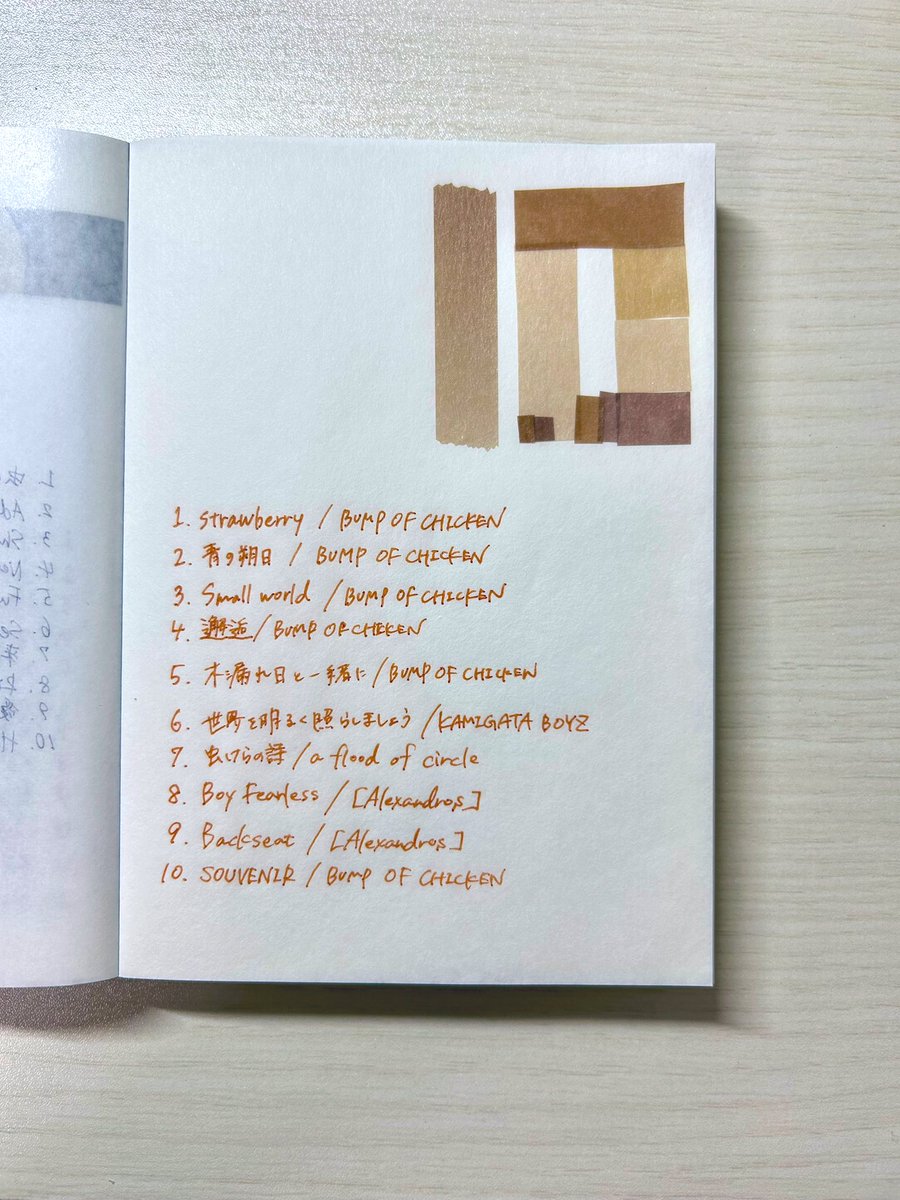 10
1. strawberry / BUMP OF CHICKEN
2. 青の朔日 / BUMP OF CHICKEN
3. Small world / BUMP OF CHICKEN
4. 邂逅 / BUMP OF CHICKEN
5. 木漏れ日と一緒に / BUMP OF CHICKEN
6. 世界を明るく照らしましょう / KAMIGATA BOYZ
7. 虫けらの詩 / a flood of circle
8. Boy Fearless / [Alexandros]
9. Backseat / [Alexandros]
10. SOUVENIR / BUMP OF CHICKEN